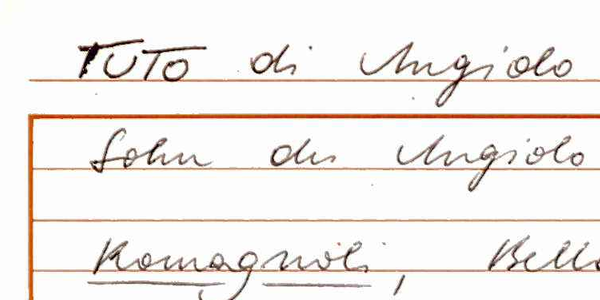 TUTO di Angiolo
Sohn des Angiolo
Romagnoli, Bello